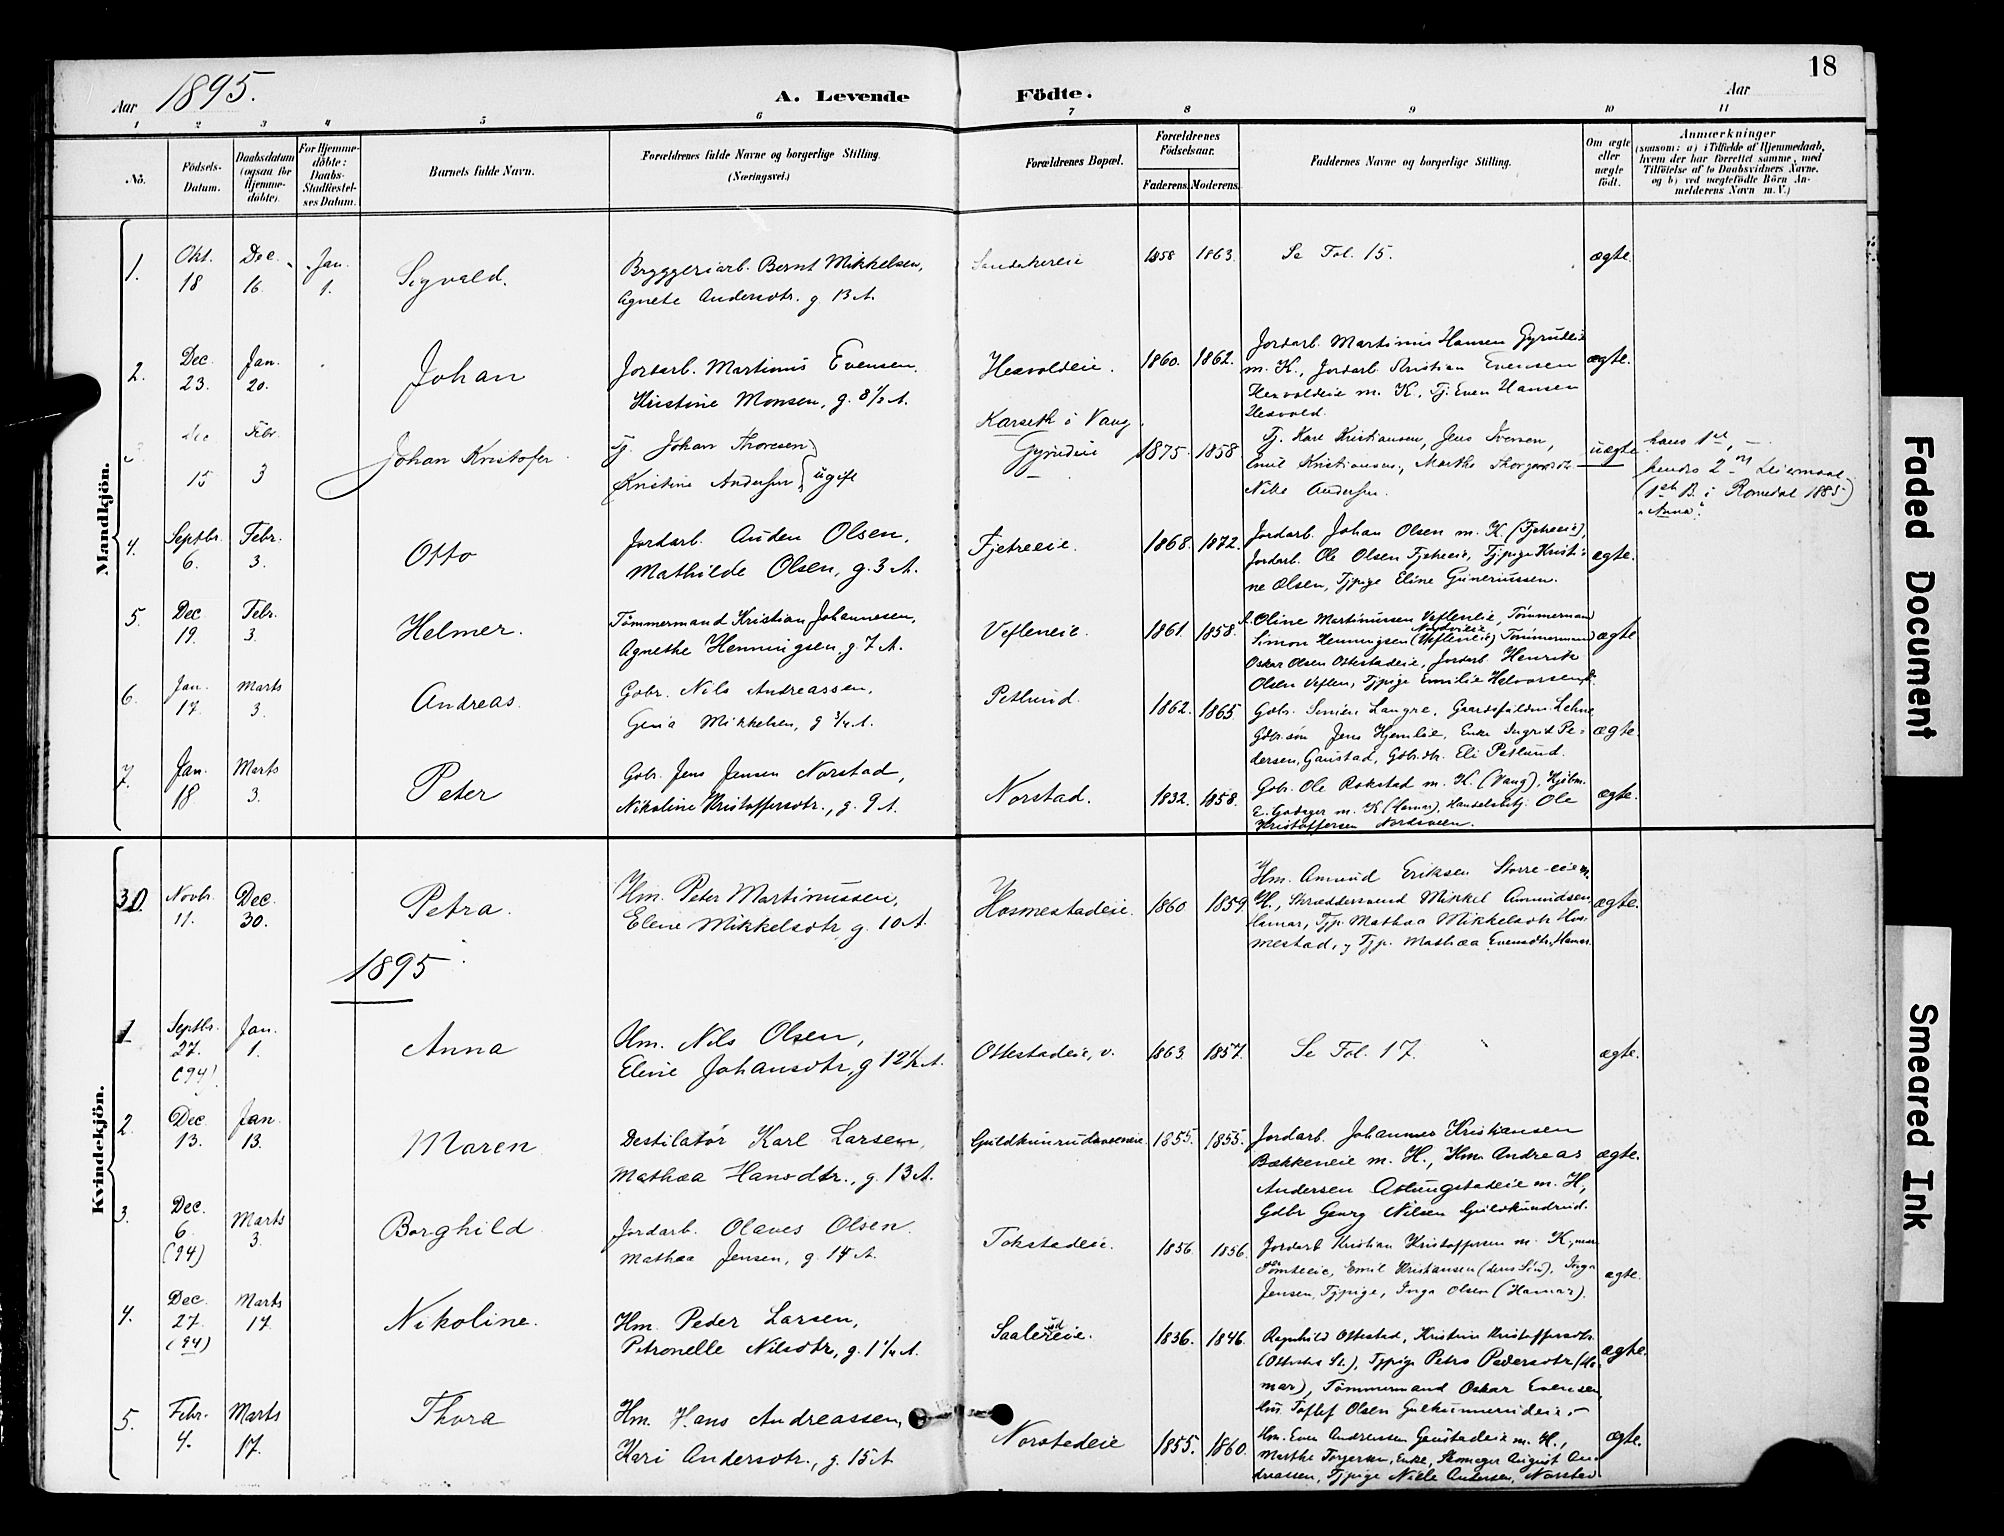 18
Aar 1895.
A. Levende Födte.
Aar
1 2 3 4 5 6 7 8 9 10 11
No.
Födsels-Datum.
Daabsdatum (ogsaa for Hjemme-döbte).
For Hjemme-döbte: Daabs-Stadfæstel-ses Datum.
Barnets fulde Navn.
Forældrenes fulde Navne og borgerlige Stilling.
(Næringsvei.)
Forældrenes Bopæl.
Forældrenes Födselsaar.
Faderens. Moderens.
Faddernes Navne og borgerlige Stilling.
Om ægte eller uægte födt.
Anmærkninger
(saasom: a) i Tilfælde af Hjemmedaab,
hvem der har forrettet samme, med
Tilföielse af to Daabsvidners Navne.
og b) ved uægtefödte Börn An-
melderens Navn m. V.)
Mandkjön.
1. Okt. 18 Dec. 16. Jan. 1. Sigvald.
Bryggeriarb. Bernt Mikkelsen,
Agnete Andersdtr. g. 13 A.
Sandakereie 1858 1863. Se Fol. 15. ægte.
2. Dec. 23. Jan. 20. Johan
Jordarb. Martinus Evensen.
Kristine Monsen, g. 8 1/2 A.
Hesvoldeie. 1860. 1862.
Jordarb. Martinus Hansen Gyrudeie
m. K., Jordarb. Kristian Evensen
Hesvoldeie m. K., Tj. Even Hansen
Hesvold.
ægte.
3 Dec 15 Febr. 3 Johan Kristofer.
Tj. Johan Thoresen
Kristine Andersen } ugift
Karseth i Vang.
Gyrudeie 1875. 1858
Tj. Karl Kristiansen, Jens Iversen,
Emil Kristiansen, Marthe
Andersen.
uægte
hans 1st, —
hendes 2 Leiermaal
(1st B. i Romedal 1885)
"Anna".
4. Septbr. 6. Febr. 3. Otto
Jordarb. Auden Olsen,
Mathilde Olsen, g. 3 A.
Fjetreeie. 1868. 1872.
Jordarb. Johan Olsen m. K. (Fjetreeie),
Jordarb. Ole Olsen Fjetreeie, Tjpige Kristi-
ne Olsen, Tjpige Eline Guneriussen.
ægte.
5. Dec 19. Febr. 3. Helmer.
Tömmermand Kristian Johannesen,
Agnethe Henningsen, g. 7 A.
Vefleneie. 1861. 1858.
Oline Martinussen Vefleneie, Tömmermand
Simon Henningsen (Vefleneie) Tömmermand
Oskar Olsen Ottestadeie, Jordarb Henrik
Olsen Veflen, Tjpige Emilie Halvorsen
ægte
6. Jan. 17. Marts 3. Andreas.
Gbr. Nils Andreassen,
Mikkelsen, g 3/4 A.
Petlund. 1862. 1865.
Gbr. Langre,
Gbr.søn Jens Hjemlie, Enke Ingrid Pe-
dersen, Gaustad, Gbr.dtr. Eli Petlund.
ægte.
7. Jan. 18 Marts 3. Peter
Gbr. Jens Jensen Norstad,
Nikoline Kristoffersdtr., g. 9 A.
Norstad. 1832. 1858.
Gbr. Ole Rokstad m. K. (Vang), Kjöbm.
m. K (Hamar), Handelsbetj. Ole
Kristoffersen Nordsveen.
ægte.
Kvindekjön.
30. Novbr. 11. Dec. 30. Petra.
Hm. Peter Martinussen,
Eline Mikkelsdtr, g. 10 A.
Hosmestadeie. 1860 1859.
Hm. Amund Eriksen Storre-eie m.
H., Skræddersvend Mikkel Amundsen,
Hamar, Tjp. Mathea Mikkelsdtr Hos-
mestad, Tjp. Mathea Evensdtr, Hamar.
ægte.
1895
1 Septbr. 27. (94). Jan. 1. Anna
Hm. Nils Olsen,
Eline Johansdtr, g 12 1/2 A.
Ottestadeie, v. 1863. 1857. Se Fol. 17. ægte.
2. Dec. 13. Jan 13. Maren
Destilatör Karl Larsen,
Mathea Hansdtr., g. 13 A.
1855. 1855.
Jordarb. Johannes Kristiansen
Bækkeneie m. H., Hm. Andreas
Andersen m. H.,
Gdbr Georg Nilsen Guldkundrud.
ægte.
3. Dec. 6 (94) Marts 3. Borghild.
Jordarb. Olaves Olsen.
Mathea Jensen, g. 14 A.
Tokstadeie. 1856. 1856.
Jordarb Kristian Kristoffersen m. K,
Emil Kristiansen (deres Sön), Inga
Jensen, Tjpige, Inga Olsen (Hamar).
ægte.
4. Dec. 27. (94) Marts 17. Nikoline.
Hm. Peder Larsen,
Petronelle Nilsdtr, g. 1 1/4 A.
1836. 1846.
Ragnhild Ottestad, Kristine Kristoffersdtr.
Tjpige Petra Pedersdtr (Ha-
mar), Tömmermand Oskar Evensen,
Toflef Olsen
ægte.
5. Febr. 4. Marts 17. Thora
Hm. Hans Andreassen,
Kari Andersdtr., g. 15 A
Norstadeie 1855. 1860.
Hm. Even Andreassen Gaustadeie m. H.,
Marthe Torgersen, Enke, Skomager August An-
dreassen, Tjpige Andersen, Norstad
ægte.
Faded Document
Smeared Ink